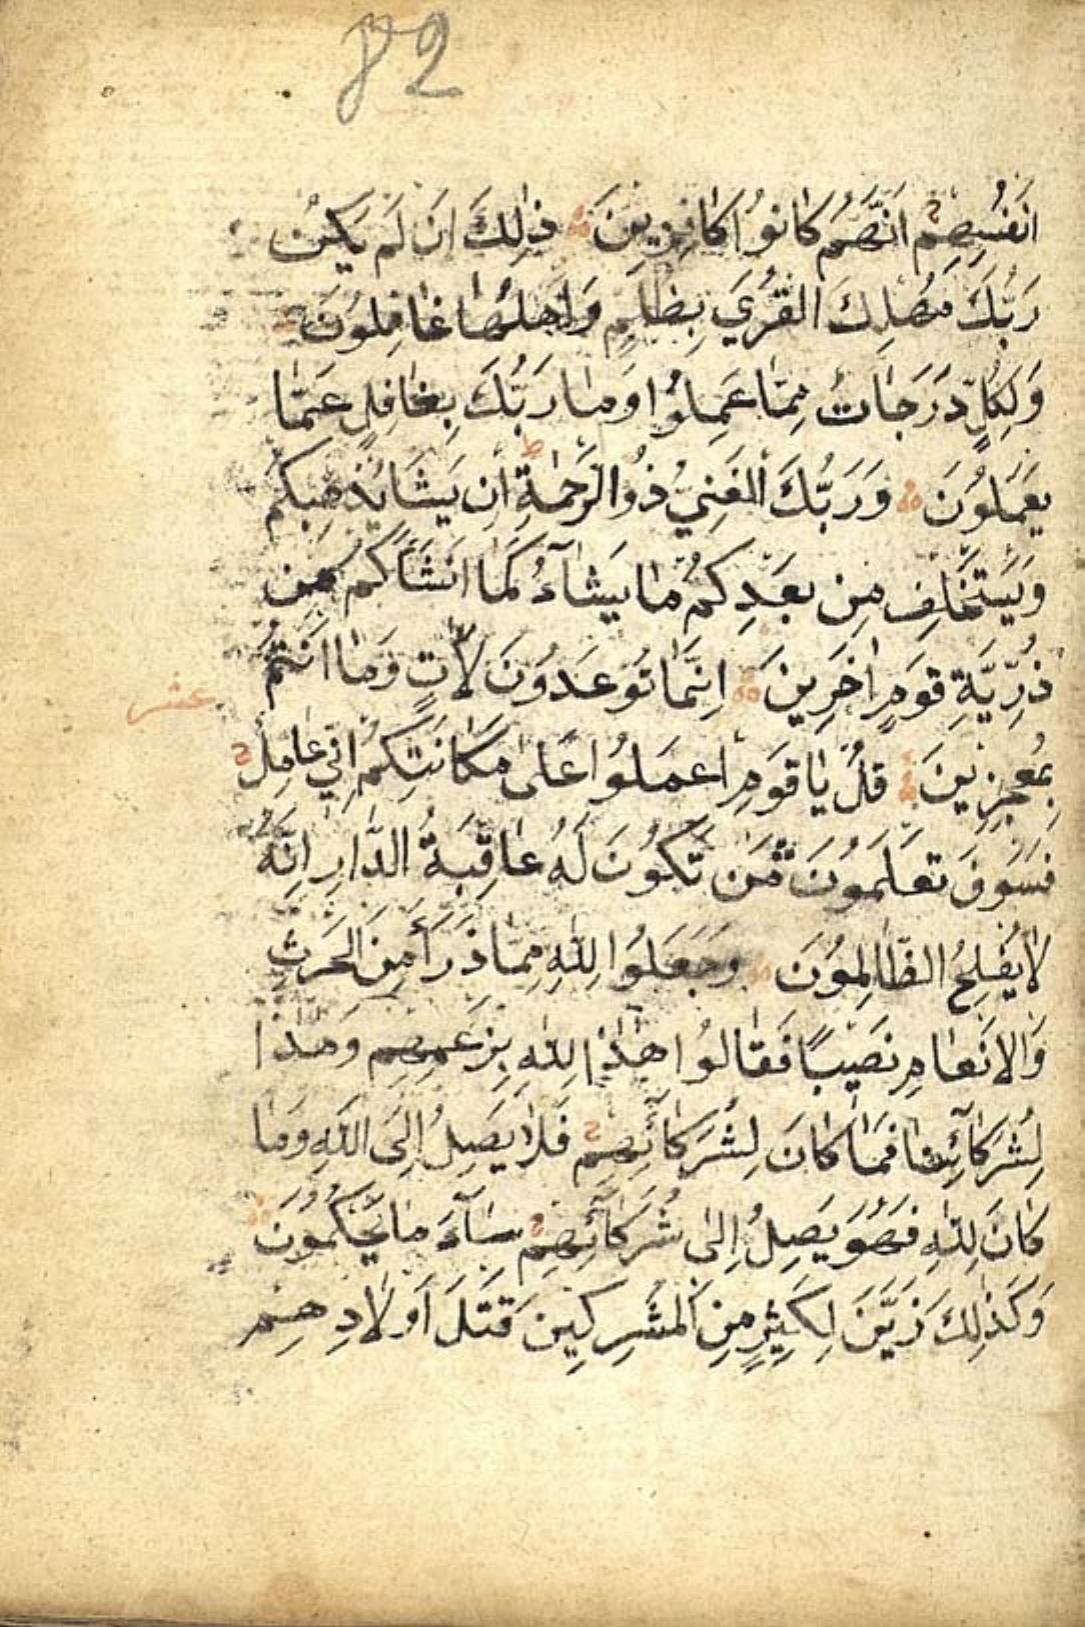 82
اَنْفُسِهِمْ اَنَّهُمْ كَانُوا كَافِرِينَ ذٰلِكَ اَنْ لَمْ يَكُنْ
رَبُّكَ مُهْلِكَ الْقُرٰي بِظُلْمٍ وَاَهْلُهَا غَافِلُونَ
وَلِكُلٍّ دَرَجَاتٌ مِمَّا عَمِلُوا وَمَا رَبُّكَ بِغَافِلٍ عَمَّا
يَعْمَلُونَ وَرَبُّكَ الْغَنِيُّ ذُو الرَّحْمَةِ ط اِنْ يَشَا يُذْهِبْكُمْ
وَيَسْتَخْلِفْ مِنْ بَعْدِكُمْ مَا يَشَآءُ كَمَا اَنْشَاَكُمْ مِنْ
ذُرِّيَّةِ قَوْمٍ اٰخَرِينَ اِنَّمَا تُوعَدُونَ لَاٰتٍ وَمَا اَنْتُمْ
عشر
بِمُعْجِزِينَ قُلْ يَا قَوْمِ اعْمَلُوا عَلٰى مَكَانَتِكُمْ اِنِّي عَامِلٌ
فَسَوْفَ تَعْلَمُونَ مَنْ تَكُونُ لَهُ عَاقِبَةُ الدَّارِ اِنَّهُ
لَا يُفْلِحُ الظَّالِمُونَ وَجَعَلُوا لِلّٰهِ مِمَّا ذَرَأَ مِنَ الْحَرْثِ
وَالْاَنْعَامِ نَصِيبًا فَقَالُوا هٰذَا لِلّٰهِ بِزَعْمِهِمْ وَهٰذَا
لِشُرَكَآئِنَا فَمَا كَانَ لِشُرَكَآئِهِمْ فَلَا يَصِلُ اِلَى اللّٰهِ وَمَا
كَانَ لِلّٰهِ فَهُوَ يَصِلُ اِلٰى شُرَكَآئِهِمْ سَآءَ مَا يَحْكُمُونَ
وَكَذٰلِكَ زَيَّنَ لِكَثِيرٍ مِنَ الْمُشْرِكِينَ قَتْلَ اَوْلَادِهِمْ